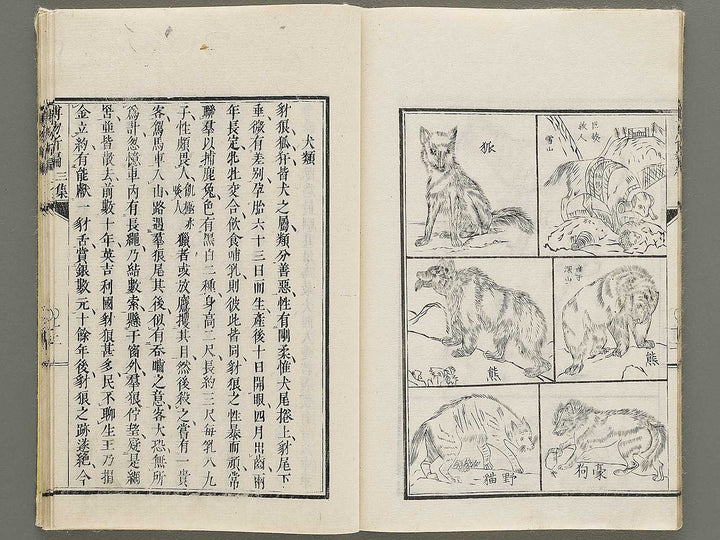 巨獒
救人
雪山
狐
深山
熊
熊
豪狗
野貓
犬類
豺狼狐犴皆犬之屬類分善惡性有剛柔惟犬尾捲上豺尾下
垂微有差別孕胎六十三日而生產後十日開眼四月出齒兩
年長定牝牡交合飲食哺乳則彼此皆同豺狼之性暴而頑常
聯羣以捕鹿兔色有黑白二種身高二尺長約三尺每乳八九
子性頗畏人飢極亦噉人獵者或放鷹攫其目然後殺之嘗有一貴
客駕馬車入山路遇羣狼尾其後似有吞噬之意客大恐無所
為計忽憶車內有長繩乃結數索懸于窗外羣狼佇望疑是網
罟並皆散去前數十年英吉利國豺狼甚多民不聊生王乃捐
金立約有能獻一豺舌賞銀數元十餘年後豺狼之跡遂絕今
博物新編 三集